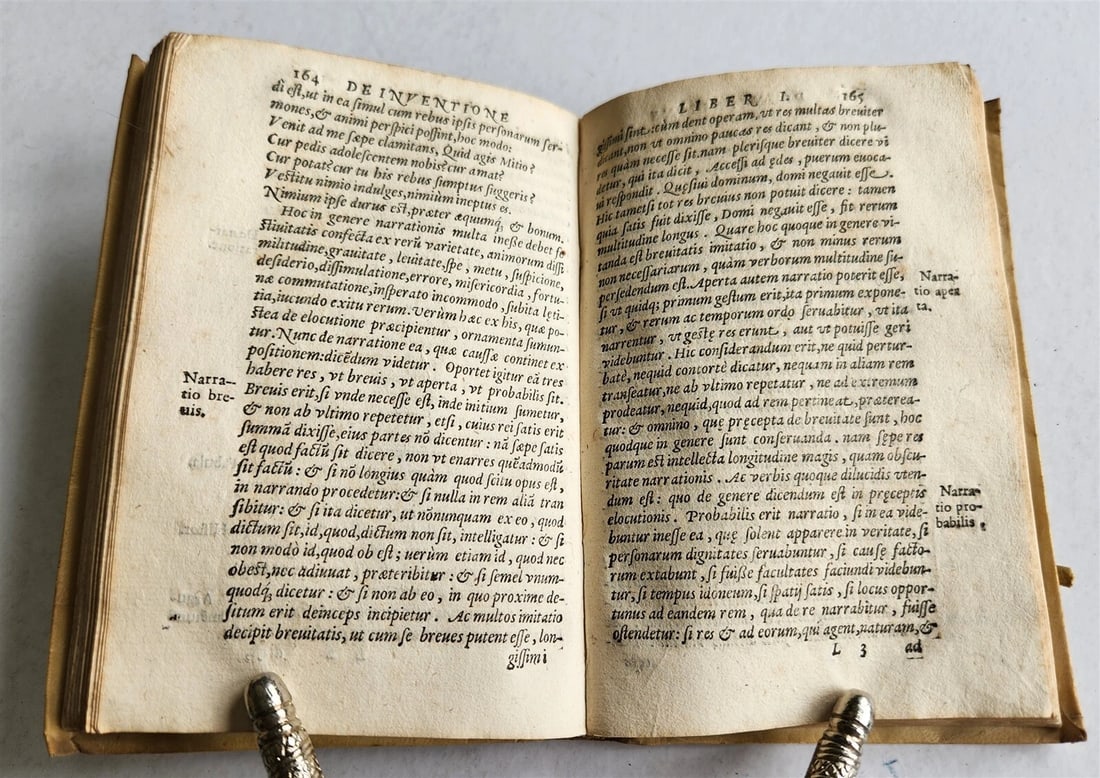 164 DE INVENTIONE
di est, ut in ea simul cum rebus ipsis personarum ser-
mones, & animi perspici possint, hoc modo:
Venit ad me sæpe clamitans, Quid agis Mitio?
Cur perdis adolescentem nobis? cur amat?
Cur potat? cur tu his rebus sumptus suggeris?
Vestitu nimio indulges, nimium ineptus es.
Nimium ipse durus est, præter æquumq́; & bonum.
Hoc in genere narrationis multa inesse debet fe
stiuitas confecta ex rerū varietate, animorum dissi
militudine, grauitate, leuitate, spe, metu, suspicione,
desiderio, dissimulatione, errore, misericordia, fortu-
næ commutatione, insperato incommodo, subita lęti-
tia, iucundo exitu rerum. Verùm hæc ex his, quæ po-
stea de elocutione præcipientur, ornamenta sumun-
tur. Nunc de narratione ea, quæ caussæ continet ex
positionem: dicēdum videtur. Oportet igitur eā tres
habere res, vt breuis, vt aperta, vt probabilis sit.
Narra-
tio bre-
uis.
Breuis erit, si vnde necesse est, inde initium sumetur,
& non ab vltimo repetetur, etsi, cuius rei satis erit
summā dixisse, eius partes nō dicentur: nā sæpe satis
est quod factū sit dicere, non vt enarres quēadmodū
sit factū: & si nō longius quàm quod scitu opus est,
in narrando procedetur: & si nulla in rem aliā tran
sibitur: & si ita dicetur, ut nōnunquam ex eo, quod
dictum sit, id, quod, dictum non sit, intelligatur: & si
non modò id, quod ob est; uerùm etiam id, quod nec
obest, nec adiuuat, præteribitur: & si semel vnum-
quodq́; dicetur: & si non ab eo, in quo proxime de-
situm erit deinceps incipietur. Ac multos imitatio
decipit breuitatis, ut cum se breues putent esse, lon-
gissimi
LIBER I. 165
gissimi sint: cùm dent operam, vt res multas breuiter
dicant, non vt omnino paucas res dicant, & non plu-
res quàm necesse sit. nam plerisque breuiter dicere vi
detur, qui ita dicit, Accessi ad ędes, puerum euoca-
ui respondit. Quęsiui dominum, domi negauit esse.
Hic tametsi tot res breuius non potuit dicere: tamen
quia satis fuit dixisse, Domi negauit esse, fit rerum
multitudine longus. Quare hoc quoque in genere vi-
tanda est breuitatis imitatio, & non minus rerum
non necessariarum, quàm verborum multitudine su-
persedendum est. Aperta autem narratio poterit esse,
Narra-
tio aper
ta.
si vt quidq; primum gestum erit, ita primum expone-
tur, & rerum ac temporum ordo seruabitur, vt ita
narrentur, vt gestę res erunt, aut vt potuisse geri
videbuntur. Hic considerandum erit, ne quid pertur-
batè, nequid contortè dicatur, nequam in aliam rem
transeatur, ne ab vltimo repetatur, ne ad extremum
prodeatur, nequid, quod ad rem pertineat, præterea-
tur: & omnino, quę pręcepta de breuitate sunt, hoc
quodque in genere sunt conseruanda. nam sępe res
parum est intellecta longitudine magis, quam obscu-
ritate narrationis. Ac verbis quoque dilucidis vten-
dum est: quo de genere dicendum est in pręceptis
Narra-
tio pro-
babilis.
elocutionis. Probabilis erit narratio, si in ea vide-
buntur inesse ea, quę solent apparere in veritate, si
personarum dignitates seruabuntur, si causę facto-
rum extabunt, si fuisse facultates faciundi videbun-
tur, si tempus idoneum, si spatij satis, si locus oppor-
tunus ad eandem rem, qua de re narrabitur, fuisse
ostendetur: si res & ad eorum, qui agent, naturam, &
L 3 ad